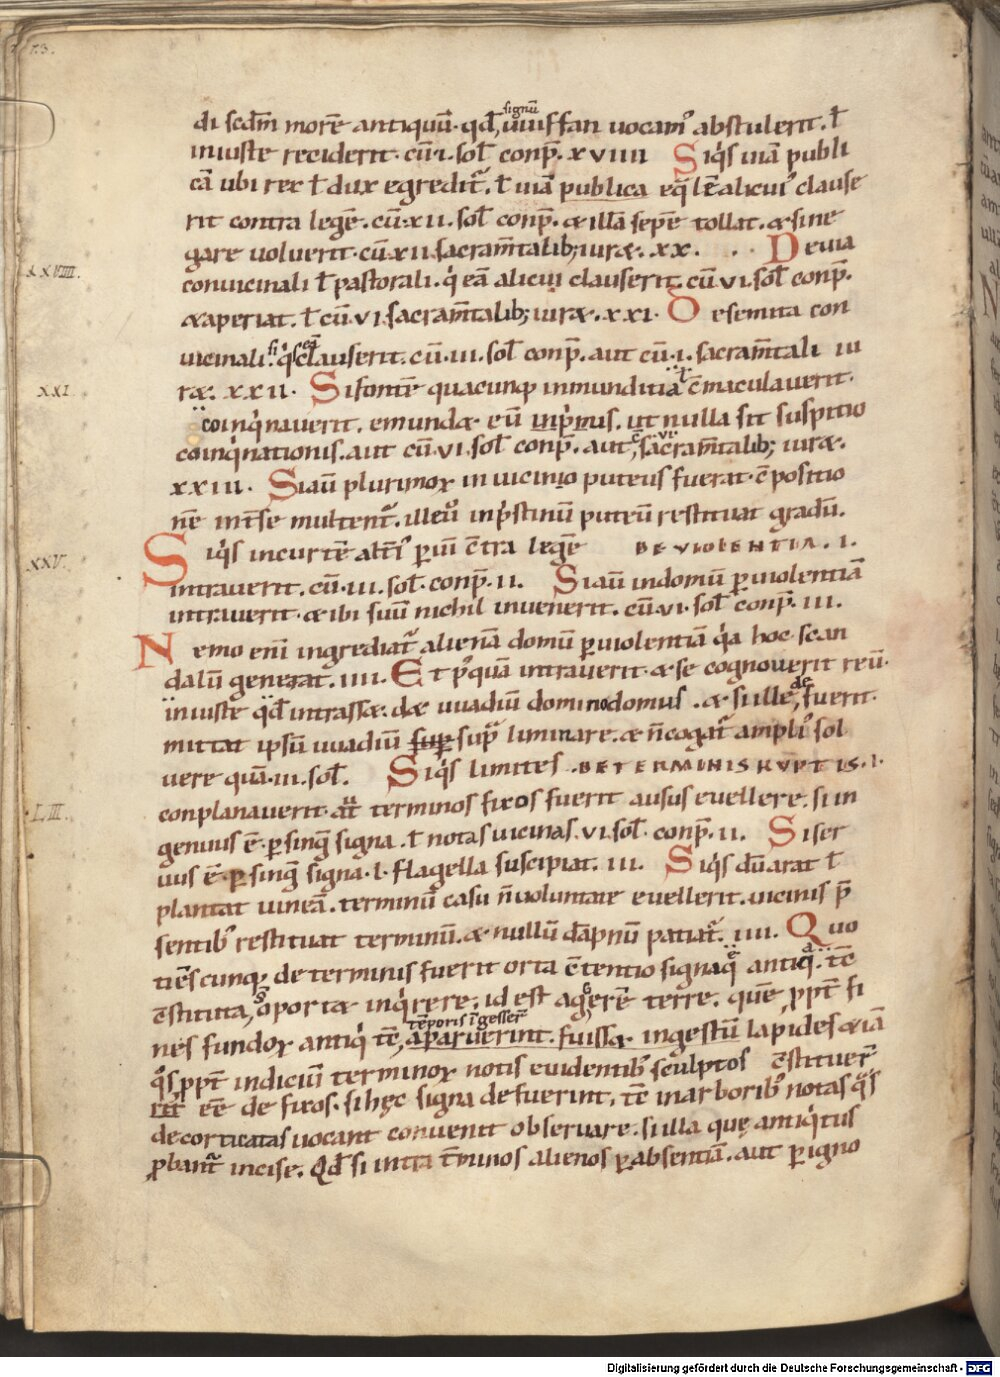 73.
signū
di scdm̄ morē antiquū. qd̄, uuiffan uocam᷒ abstulerit. ł
iniuste reciderit. cū .i. sol̄ conp̄. xviiii Siq́s uiā publi
cā ubi rex ł dux egredit᷑. ł uiā publica eq̄ l̄e alicui᷒ clause
rit contra legē. cū .xii. sol̄ conp̄. & illā sepē tollat. & si ne
gare uoluerit. cū xii. sacram̄talib; iur&. xx. . . Deuia
XXVIIII.
conuicinali ł pastorali. q́ eā alicui clauserit. cū vi. sol̄ conp̄.
& aperiat. ł cū .vi. sacram̄talib; iur&. xxi. De semita con
uicinali. si q́s clauserit. cū .iii. sol̄ conp̄. aut cū .i. sacram̄tali iu
XXI.
r&. xxii. Si fontē quacunq; inmunditiā c̄maculauerit. ł
coinq́nauerit. emund& eū inp̄mis. ut nulla sit suspitio
coinq́nationis. aut cū .vi. sol̄ conp̄. aut, c̄ vi sacram̄talib; iur&.
xxiii. Siaū plurimoꝝ in uicinio puteus fuerat. c̄positio
nē int̄se multent᷑. ille ů inṕstinū puteū restituat gradū.
XXV.
Siq́s incurtē alt̄i᷒ p̱ uiī c̄tra legē DE VIOLENTIA. I.
intrauerit. cū .iii. sol̄. conp̄. ii. Siaū indomū p̱uiolentiā
intrauerit. & ibi suū nichil inuenerit. cū .vi. sol̄ conp̄. iii.
Nemo enī ingrediat᷑ alienā domū p̱uiolentiā q́a hoc scan
dalū generat. iiii. Et p᷒quā intrauerit. & se cognouerit reū.
iniuste qd̄ intrass&. d& uuadiū domino domus. & si ille, de fuerit.
mittat ipsū uuadiū sup̱ sup᷑ liminare. & n̄ cogat᷑ ampli᷒ sol
uere quā .iii. sol̄. Siq́s limites .DE TERMINIS RVPTIS. I.
conplanauerit. aut̄ terminos fixos fuerit ausus euellere. si in
LII.
genuus ē. p̱ singl̄a signa. ł notas uicinas. vi. sol̄. conp̄. ii. Si ser
uus ē. p̱ singl̄a signa. l. flagella suscipiat. iii. Siq́s dū arat ł
plantat uineā. terminū casu n̄ uoluntate euellerit. uicinis p̄
sentib᷒ restituat terminū. & nullū dāpnū patiat᷑. iiii. Quo
tiēscunq; de terminis fuerit orta c̄tentio signa q̄ antiq́. t̄c
c̄stituta, s̄ oport& inq́rere. id est aggerē terre. quē ppt̄ fi
tēporis īgesser̄
nes fundoꝝ antiq́ t̄c, aparuerint. fuiss& ingestū lapides &iā
q́s ppt̄ indiciū terminoꝝ notis euidentib᷒ sculptos c̄stituer̄
rit ee̅ de fixos. si hęc signa defuerint. t̄c in arboribꝰ notas q́s
decorticatas uocant conuenit obseruare. si illa quę antiq́tus
ꝓbant᷑ incise. Qd̄ si intra t̄minos alienos p̱ absentiā. aut p̱ igno
Digitalisierung gefördert durch die Deutsche Forschungsgemeinschaft - DFG